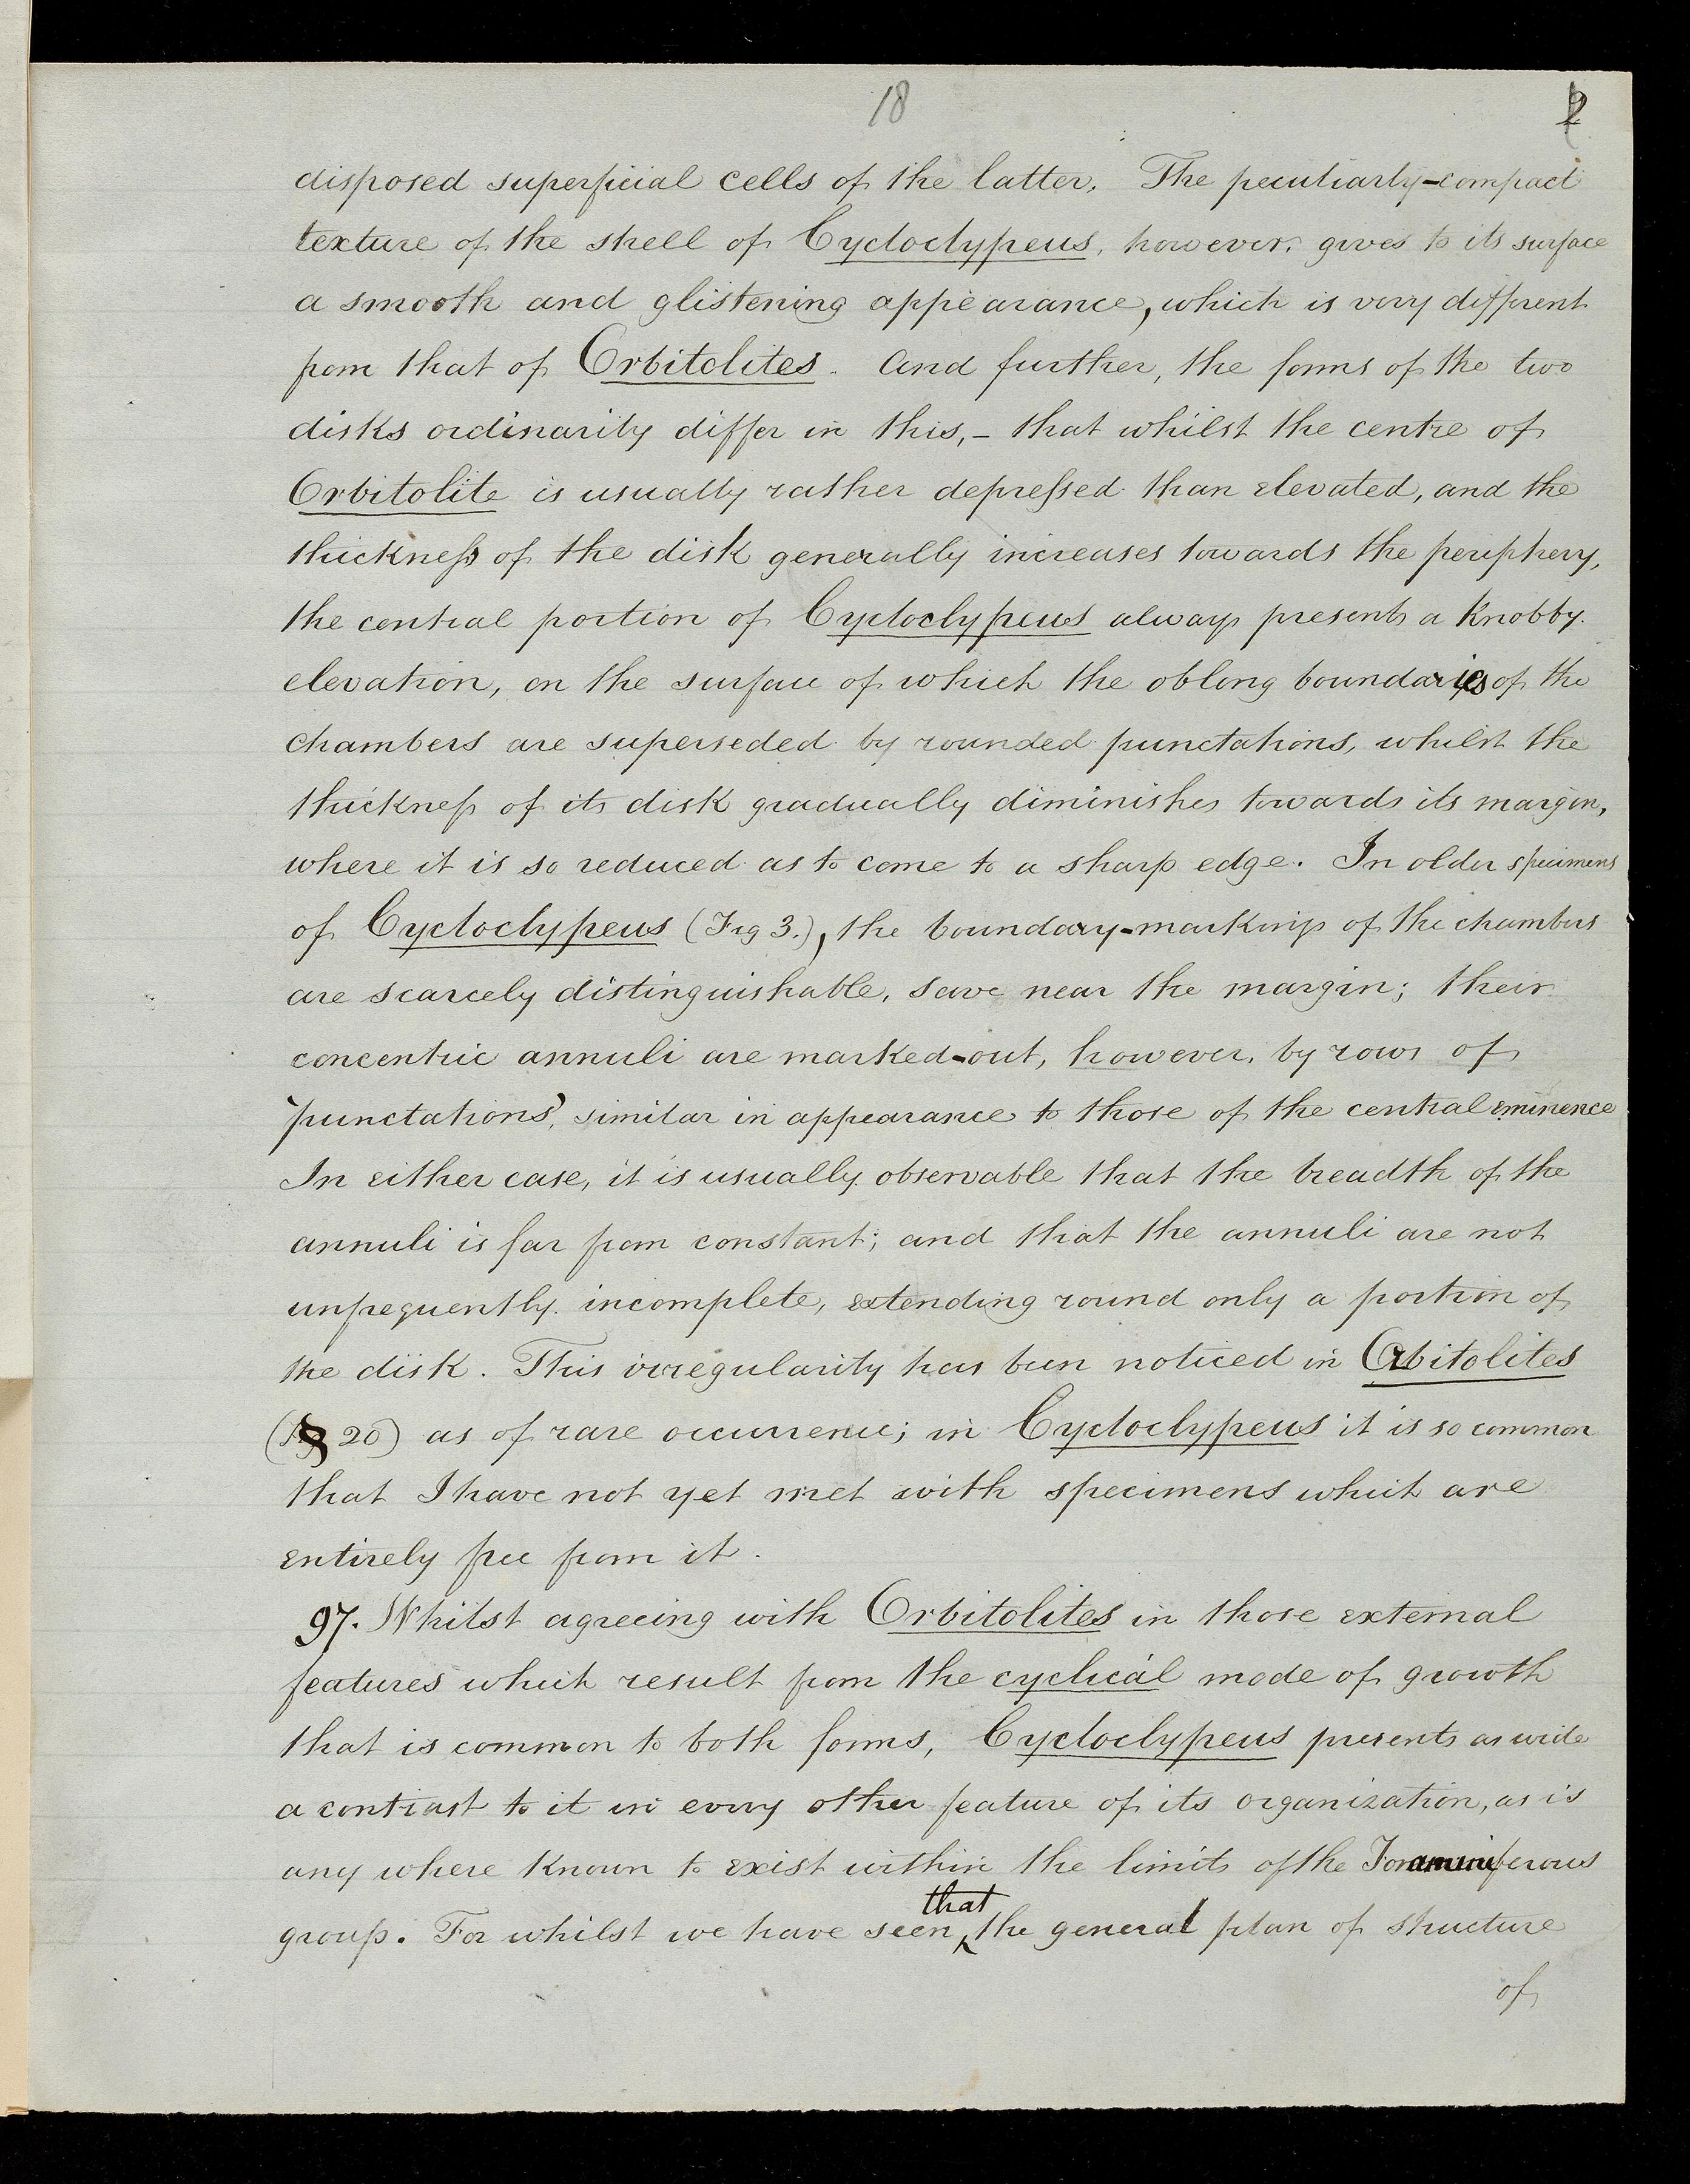 18
disposed superficial cells of the latter. The peculiarly-compact
texture of the shell of Cycloclypeus, however, gives to its surface
a smooth and glistening appearance, which is very different
from that of Orbitolites. And further, the forms of the two
disks ordinarily differ in this,- that whilst the centre of
Orbitolite is usually rather depressed than elevated, and the
thickness of the disk generally increases towards the periphery,
the central portion of Cycloclypeus always presents a knobby
elevation, on the surface of which the oblong boundaries of the
chambers are superseded by rounded punctations, whilst the
thickness of its disk gradually diminishes towards its margin,
where it is so reduced as to come to a sharp edge. In older specimens
of Cycloclypeus (Fig 3.), the boundary-markings of the chambers
are scarcely distinguishable, save near the margin; their
concentric annuli are marked-out, however, by rows of
'punctations', similar in appearance to those of the central eminence
In either case, it is usually observable that the breadth of the
annuli is far from constant; and that the annuli are not
unfrequently incomplete, extending round only a portion of
the disk. This irregularity has been noticed in Orbitolites
(§ 20) as of rare occurrence; in Cycloclypeus it is so common
that I have not yet met with specimens which are
entirely free from it.
97. Whilst agreeing with Orbitolites in those external
features which result from the cyclical mode of growth
that is common to both forms, Cycloclypeus presents as wide
a contrast to it in every other feature of its organization, as is
any where known to exist within the limits of the Foraminiferous
group. For whilst we have seen that the general plan of structure
of